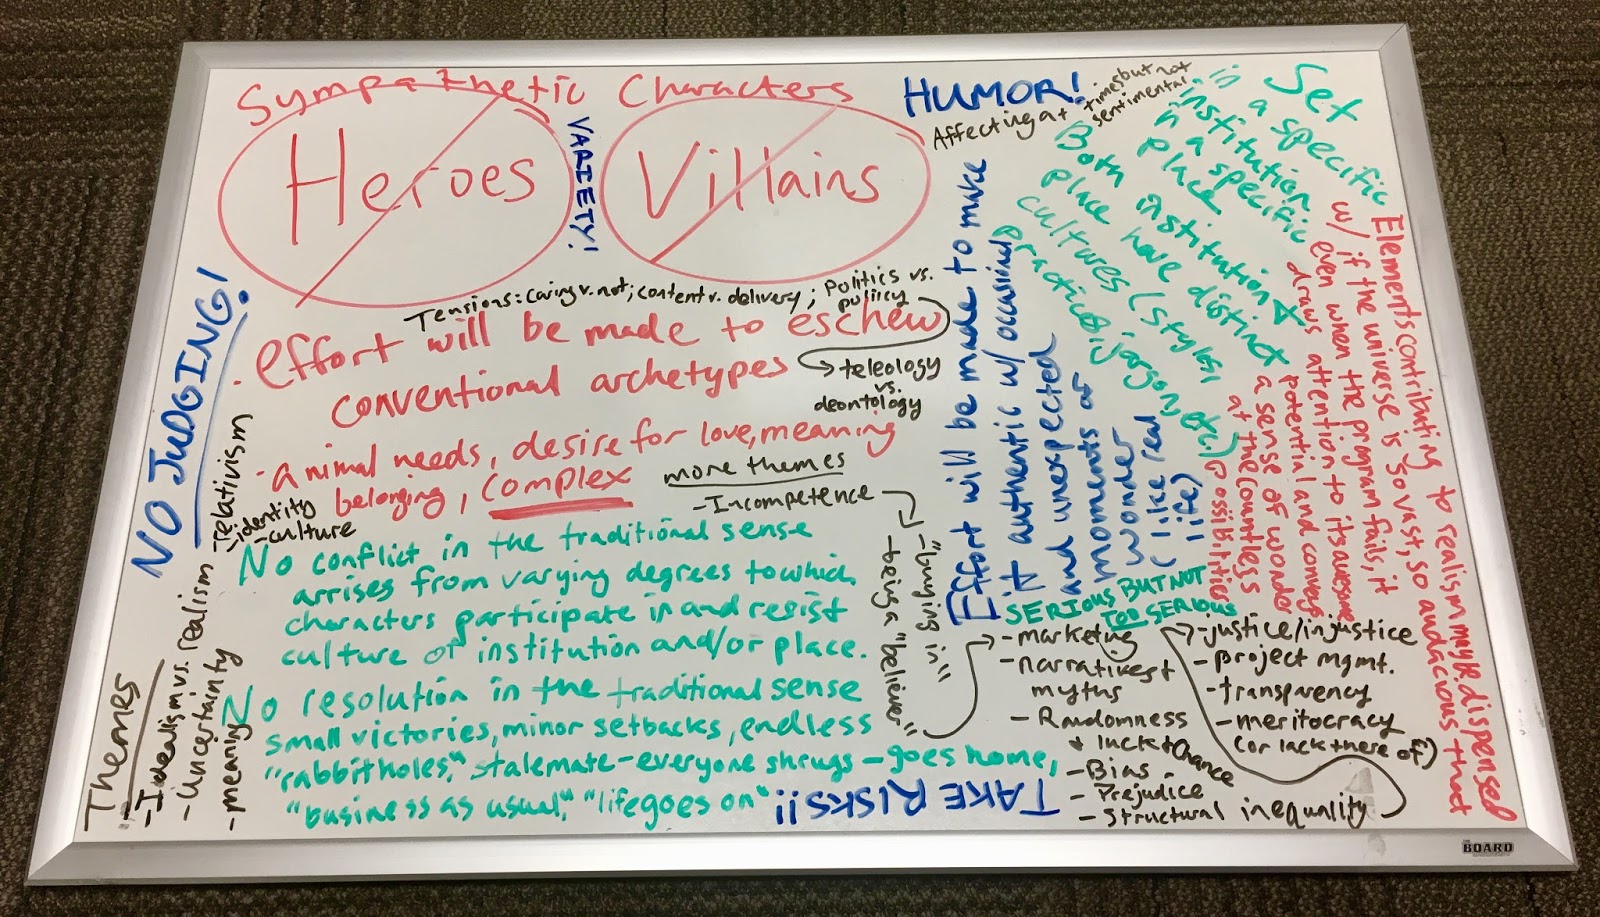 Sympathetic Characters
Heroes
VARIETY!
Villains
HUMOR!
Affecting at times but not
sentimental
Tensions: Caring v. not; content v. delivery; Politics vs.
policy
• effort will be made to eschew
conventional archetypes
teleology
vs.
deontology
• animal needs, desire for love, meaning
belonging, complex
more themes
- Incompetence
- "buying in"
- being a "believer"
- marketing
- narratives &
myths
- Randomness
& luck & chance
- Bias
- Prejudice
- Structural inequality
- justice/injustice
- project mgmt.
- transparency
- meritocracy
(or lack there of)
No conflict in the traditional sense
arrises from varying degrees to which
characters participate in and resist
culture of institution and/or place.
No resolution in the traditional sense
small victories, minor setbacks, endless
"rabbit holes," stalemate - everyone shrugs - goes home,
"business as usual," "life goes on"
TAKE RISKS!!
NO JUDGING!
Themes
- Idealism vs. realism
- Uncertainty
- meaning
- relativism
- identity
- culture
Effort will be made to make
it authentic w/ occasional
and unexpected
moments of
wonder
(like real
life)
SERIOUS BUT NOT
TOO SERIOUS
Set
in a specific
institution
in a specific
place
Both institution &
place have distinct
cultures (styles,
practices, jargon, etc.)
Elements contributing to realism may be dispensed
w/ if the universe is so vast, so audacious that
even when the program fails, it
draws attention to its awesome
potential and conveys
a sense of wonder
at the countless
possibilities
THE
BOARD